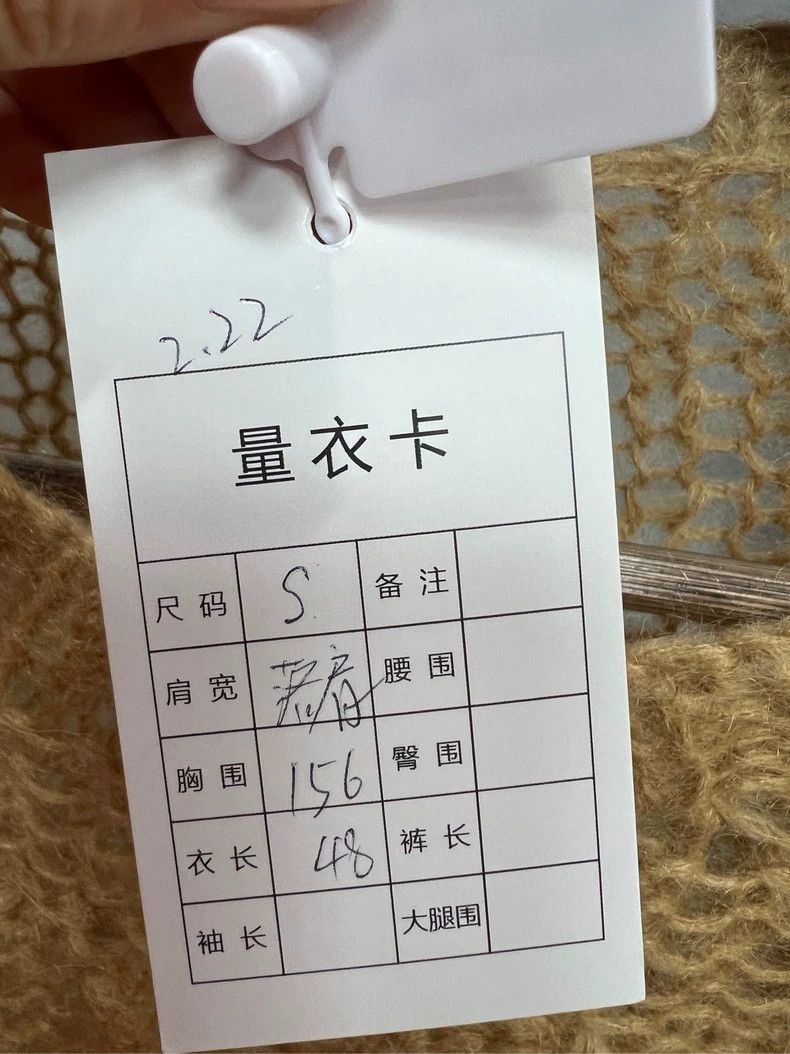 2.22
量衣卡
尺码 S 备注
肩宽 落肩 腰围
胸围 156 臀围
衣长 48 裤长
袖长 大腿围